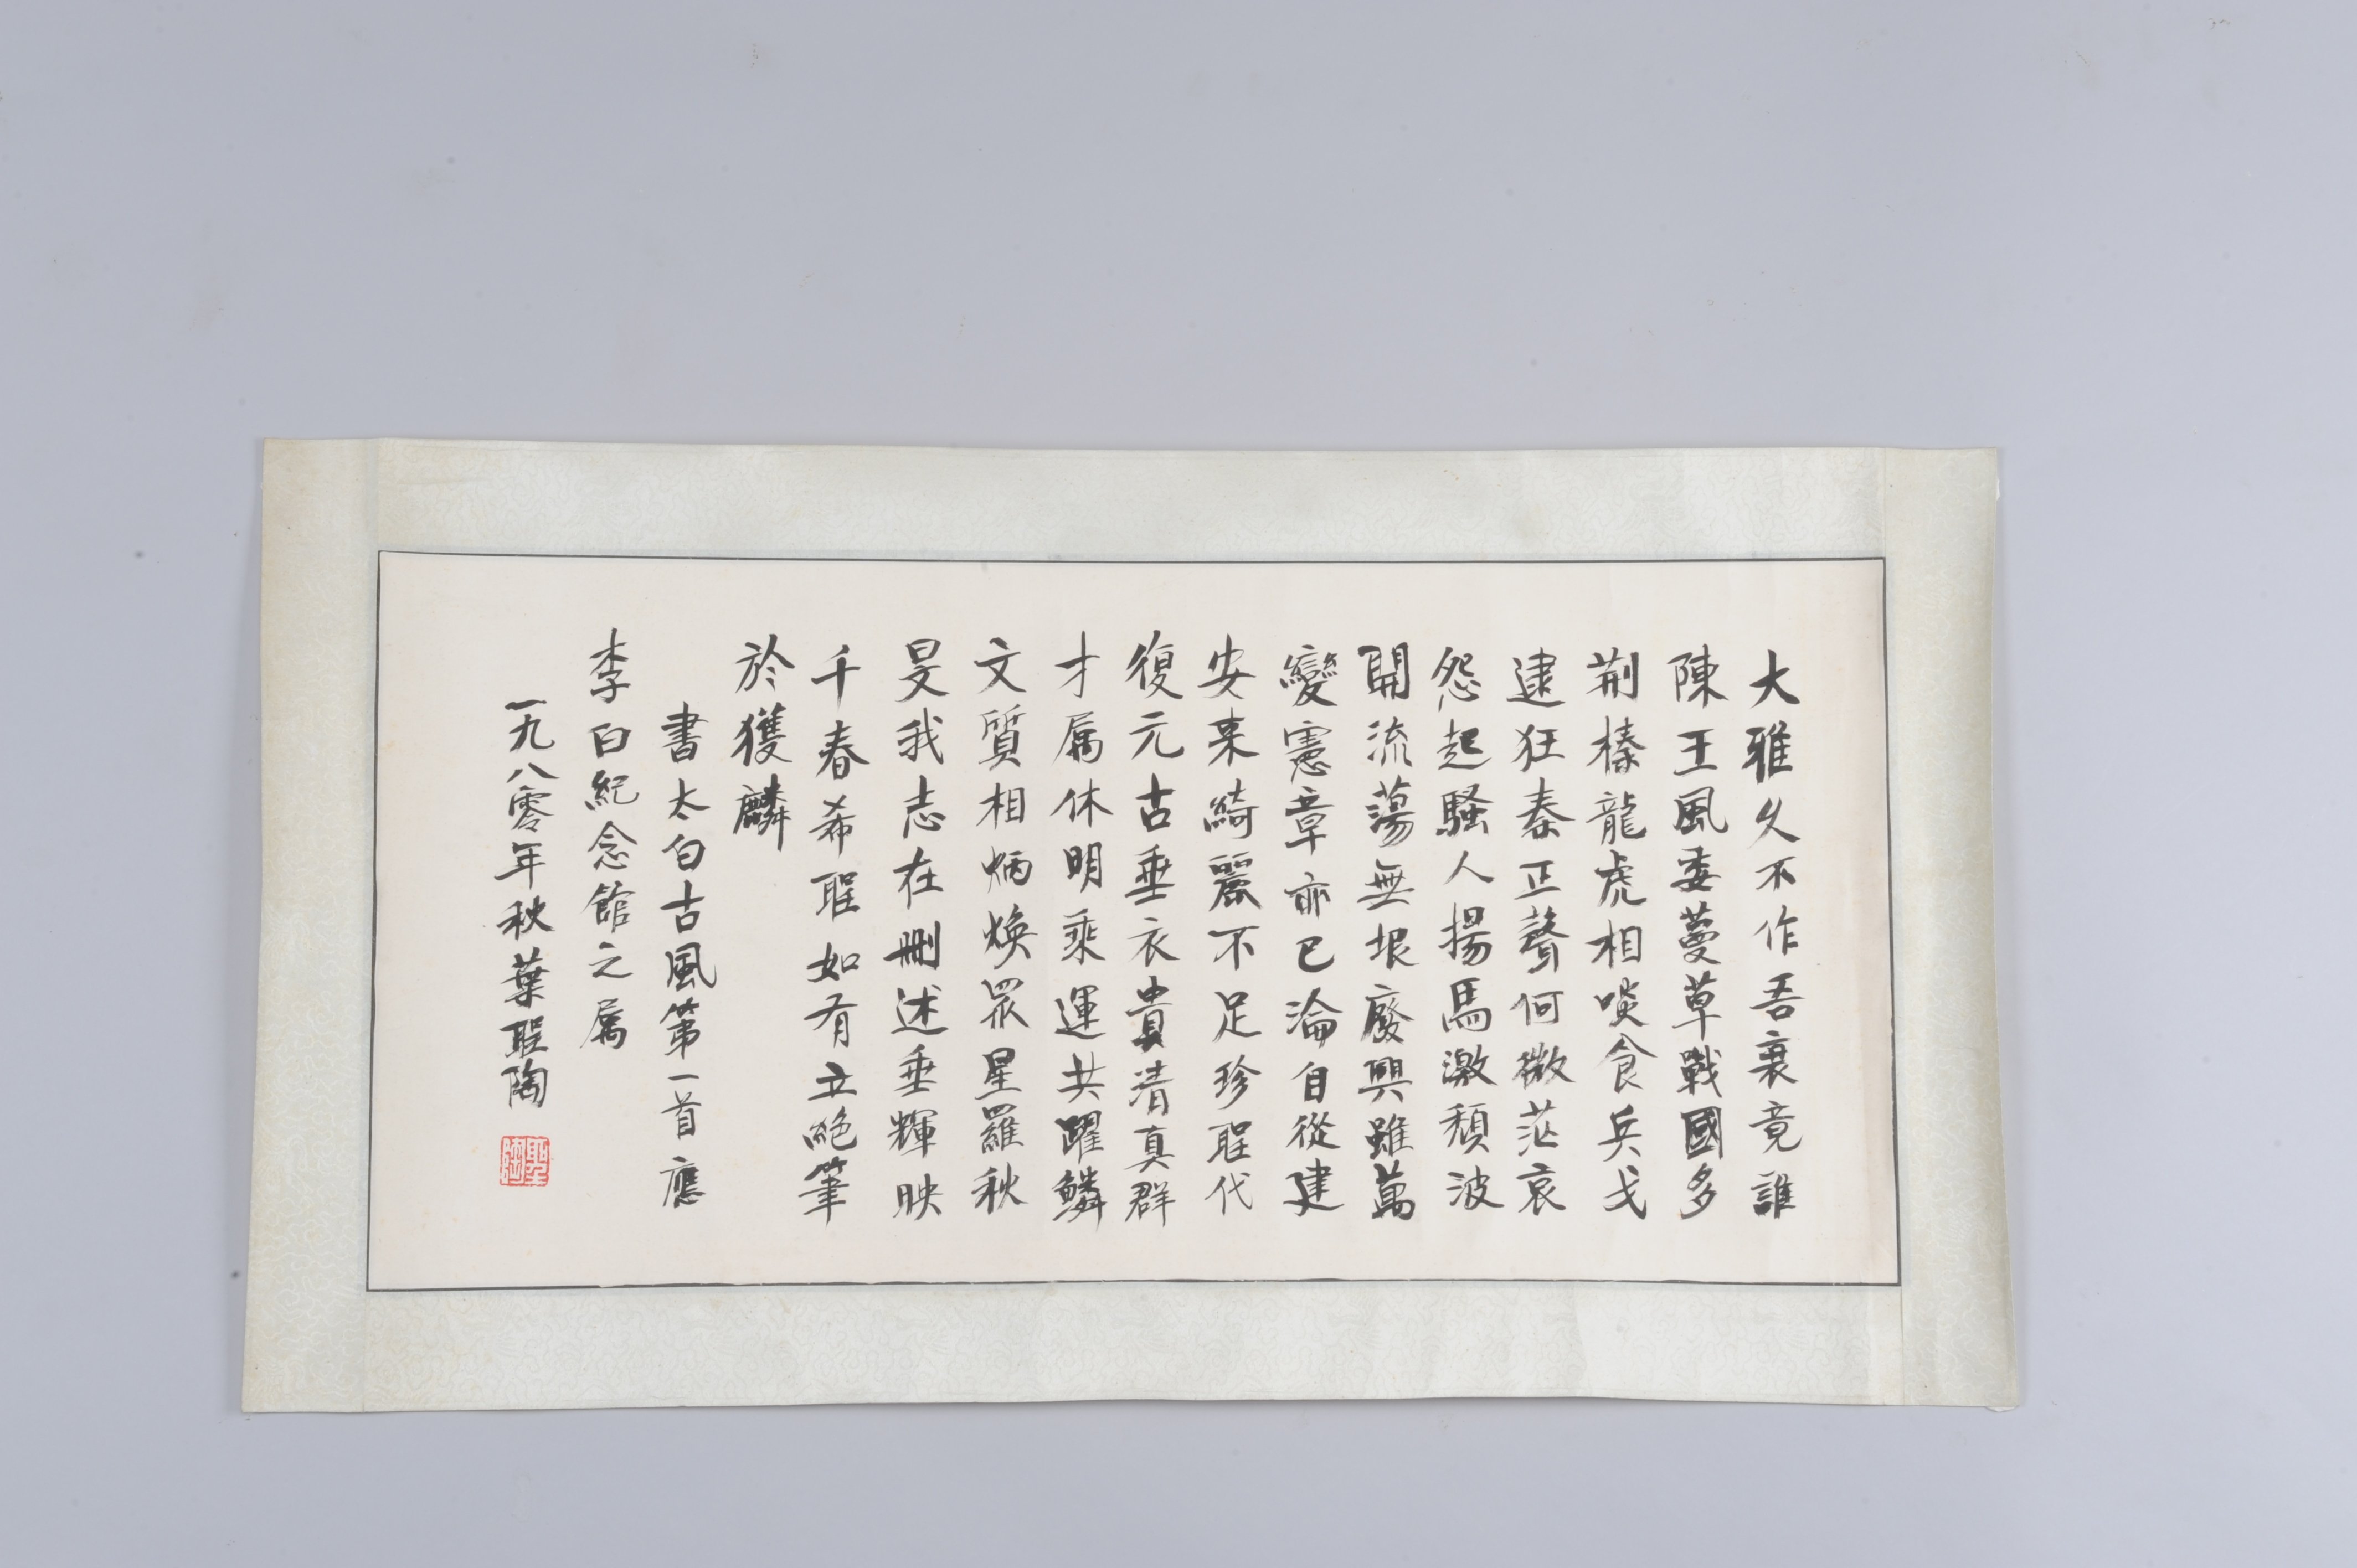 大雅久不作吾衰竟誰
陳王風委蔓草戰國多
荆榛龍虎相啖食兵戈
逮狂秦正聲何微茫哀
怨起騷人揚馬激頹波
開流蕩無垠廢興雖萬
變憲章亦已淪自從建
安来綺麗不足珍聖代
復元古垂衣貴清真群
才屬休明乘運共躍鱗
文質相炳煥眾星羅秋
旻我志在刪述垂輝映
千春希聖如有立絕筆
於獲麟
書太白古風第一首應
李白紀念館之屬
一九八零年秋葉聖陶
聖陶